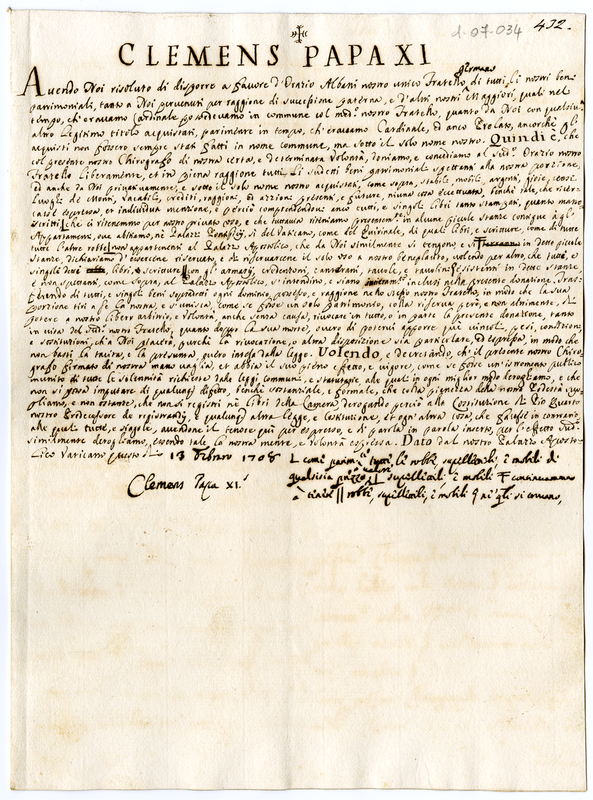 1-07-034
412.
CLEMENS PAPA XI
germano
Avendo Noi risoluto di disporre a favore d'Orazio Albani nostro unico Fratello di tutti li nostri beni
patrimoniali, tanto a Noi pervenuti per raggione di successione paterna, e d'altri nostri Maggiori, quali nel
tempo, ch'eravamo Cardinale possedevamo in commune col nostro Fratello, quanto da Noi con qualsiv
altro legitimo titolo acquistati, parimente in tempo, ch'eravamo Cardinale, ed anco Prelato, ancorchè gli
acquisti non fossero sempre stati fatti in nome commune, ma sotto il solo nome nostro. Quindi è, che
col presente nostro Chirografo di nostra certa, e determinata volontà, doniamo, e concediamo al Orazio nostro
Fratello liberamente, et in piena raggione tutti li sudetti beni patrimoniali spettanti alla nostra porzione,
ed anche da Noi privativamente, e sotto il solo nome nostro acquistati, come sopra, stabili, mobili, argenti, gioie,
Luoghi de Monti, vacabili, crediti, raggioni, ed azzioni presenti, e future, niuna cosa eccettuata, benchè tale, che ricer-
casse espressa, et individua menzione, e perciò comprendendovi anco tutti, e singoli libri tanto stampati, quanto mano-
scritti che si ritenemmo per nostro privato uso, e che tuttavia riteniamo presentem.te in alcune piccole stanze contigue à gli
Appartamenti, sue altiamo, nè Palazzi si del Vaticano, come del Quirinale, di quali libri, e scritture, come di tutte
tutte l'altre robbe non appartenenti al Palazzo Apostolico, che da Noi similmente si tengono, e si in dette piccole
stanze, dichiariamo d'esserne riservato, e di riservarcene il solo uso a nostro beneplacito, volendo per altro, che tutte, e
singole dette libri, e scritture con gli armarij, credenzoni, canterani, tavole, e tavolini esistenti in dette stanze,
e non spettanti, come sopra, al Palazzo Apostolico, s'intendino, e siano inclusi nella presente donazione. Tras-
ferendo di tutti, e singoli beni sopradetti ogni dominio, possesso, e raggione nello stesso nostro Fratello, in modo che la sua
porzione tiri a se la nostra, e s'unisca, come se fosse un solo patrimonio, colla riserva però, e non altrimente, di
potere a nostro libero arbitrio, e volontà, anche senza causa, rivocare in tutto, o in parte la presente donazione, tanto
in vita del nostro Fratello, quanto doppo la sua morte, overo di potervi apporre più vincoli, pesi, condizioni,
e sostituzioni, ch'a Noi piacerà, purchè la rivocazione, o altra disposizione sia particolare, ed espressa, in modo che
non basti la tacita, e la presunta, overo intesa dalla legge. Volendo, e decretando, ch'il presente nostro Chiro-
grafo firmato di nostra mano vaglia, et abbia il suo pieno effetto, e vigore, come se fosse un'istromento publico
munito di tutte le solennità richieste dalle leggi communi, e statutarie, alle quali in ogni miglior modo deroghiamo, e che
non si possa impugnare di qualunque difetto, benchè sostanziale, e formale, che colla pienezza della nostra Podestà sup-
pliamo, e non ostante, che non si registri nè libri della Camera derogando perciò alla Costituzione di Pio Quarto
nostro Predecessore de registrandis, e qualunque altra legge, e costituzione, et ogni altra cosa, che facesse in contrario,
alle quali tutte, e singole, avendone il tenore quì per espresso, e di parola in parola inserto, per l'effetto
similmente deroghiamo, essendo tale la nostra mente, e volontà espressa. Dato dal nostro Palazzo Aposto-
lico Vaticano questo dì 13 Febraro 1708
tutti li robbi, supellettili, i mobili di
qualsisia
supellettili, i mobili continuamo
à tenere robbi, supellettili, i mobili
Clemens Papa XI.